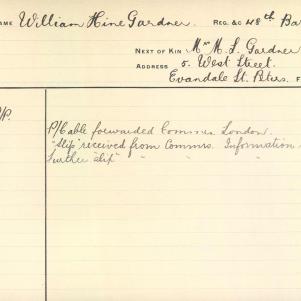 NAME William Hine Gardner. REG. &C 48th Ba
NEXT OF KIN Mrs M. L. Gardner
ADDRESS 5. West Street.
Evandale St. Peters. F
P/Cable forwarded Commrs. London.
"Slip" received from Commrs. Information
further "slip" " " "